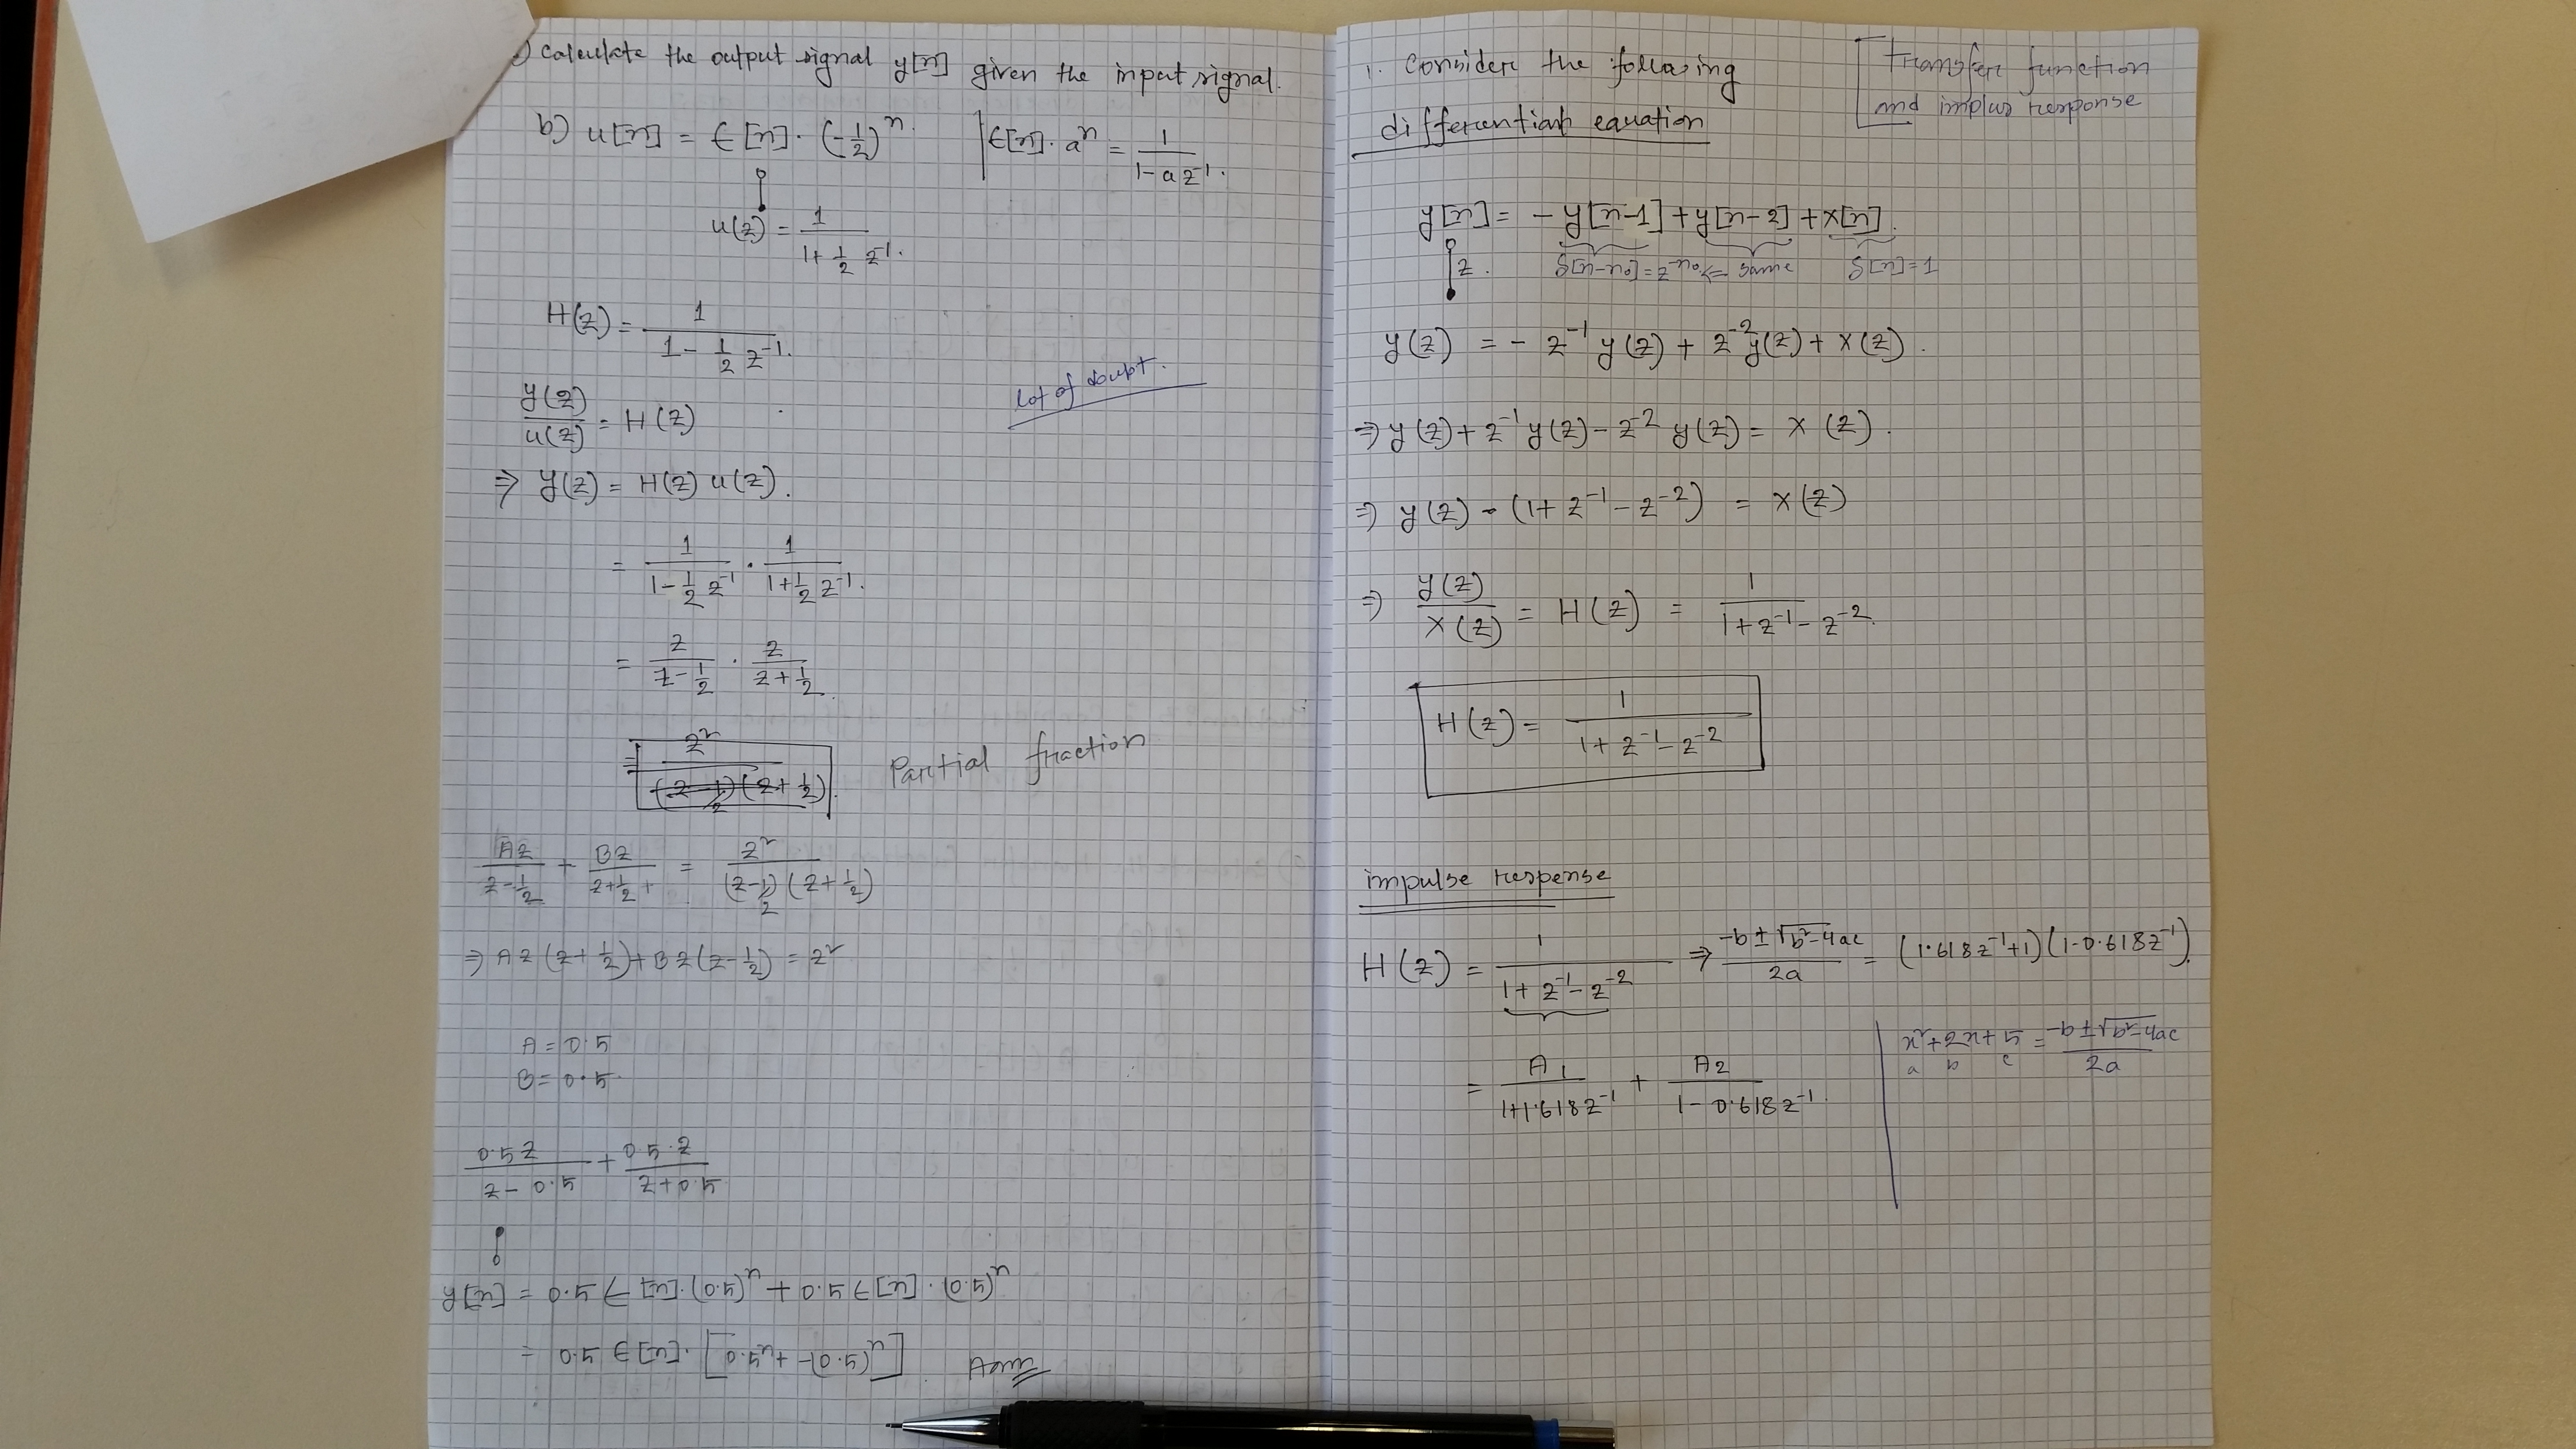 ) Calculate the output signal y[n] given the input signal.
b) u[n] = ϵ[n]·(-1/2)^n. | ϵ[n]·a^n = 1/(1-az^-1).
u(z) = 1/(1+1/2 z^-1).
H(z) = 1/(1-1/2 z^-1).
Lot of doubt.
y(z)/u(z) = H(z)
⇒ y(z) = H(z) u(z).
= 1/(1-1/2 z^-1) · 1/(1+1/2 z^-1).
= z/(z-1/2) · z/(z+1/2).
= z²/((z-1/2)(z+1/2)). Partial fraction
Az/(z-1/2) + Bz/(z+1/2) + = z²/((z-1/2)(z+1/2))
⇒ Az(z+1/2)+Bz(z-1/2) = z²
A = 0.5
B = 0.5.
0.5z/(z-0.5) + 0.5·z/(z+0.5)
y[n] = 0.5 ϵ[n]·(0.5)^n + 0.5 ϵ[n]·(0.5)^n
= 0.5 ϵ[n]·[0.5^n + -(0.5)^n]
1. Consider the following
differential equation
[Transfer function
and implus response
y[n] = -y[n-1]+y[n-2]+x[n].
z. δ[n-n0]=z^-n0 ⇒ same δ[n]=1
y(z) = - z^-1 y(z) + z^-2 y(z) + x(z).
⇒ y(z)+z^-1 y(z)-z^-2 y(z) = x(z).
⇒ y(z) - (1+z^-1-z^-2) = x(z)
⇒ y(z)/x(z) = H(z) = 1/(1+z^-1-z^-2).
H(z) = 1/(1+z^-1-z^-2)
impulse response
H(z) = 1/(1+z^-1-z^-2) ⇒ (-b±√(b²-4ac))/2a = (1.618z^-1+1)(1-0.618z^-1).
= A1/(1+1.618z^-1) + A2/(1-0.618z^-1).
x²+2x+5 = (-b±√(b²-4ac))/2a
a b c